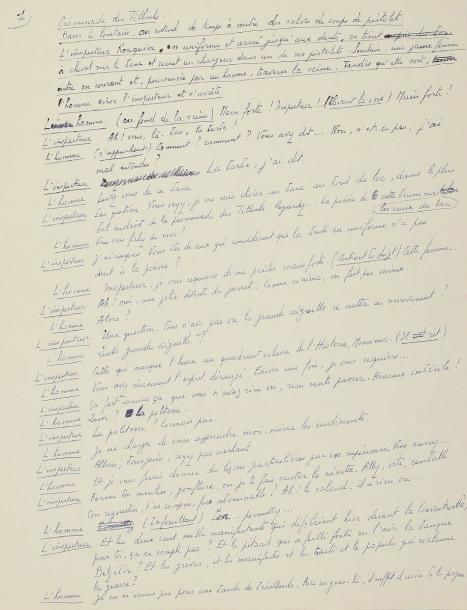 1
Promenade des Tilleuls.
Dans le lointain, on entend de temps à autre des salves de coups de pistolet.
L'inspecteur, en uniforme et armé jusqu'aux dents, se tient
à cheval sur le banc et remet un chargeur dans un de ses pistolets. Soudain, une jeune femme
entre en courant et, poursuivie par un homme, traverse la scène. Tandis qu'elle sort,
l'homme avise l'inspecteur et s'arrête
L'homme (au fond de la scène) Main forte ! Inspecteur ! Main forte !
L'inspecteur Ah ! vous, là-bas, la tarte !
L'homme (s'approchant) Comment ? comment ? Vous avez dit... Non, n'est-ce pas, j'ai
mal entendu ?
L'inspecteur La tarte, j'ai dit.
L'homme Levez-vous de ce banc.
L'inspecteur Pas question. Vous voyez, je me suis choisi un banc au bord du lac, dans le plus
bel endroit de la promenade des Tilleuls. Regardez... La poésie de cette brume sur
les eaux du lac
L'homme Vous vous fichez de moi ?
L'inspecteur J'ai compris. Vous êtes de ceux qui considèrent que la brute en uniforme n'a pas
droit à la poésie ?
L'homme Inspecteur, je vous requiers de me prêter main forte. Cette femme..
L'inspecteur Ah ! oui, une jolie détente du jarret. Comme cinéma, on fait pas mieux.
L'homme Alors ?
L'inspecteur Une question. Vous n'avez pas vu la grande aiguille se mettre en mouvement ?
L'homme Quelle grande aiguille ?
L'inspecteur Celle qui marque l'heure au quadrant solaire de l'Histoire, Monsieur. (Il rit)
L'homme Vous avez sûrement l'esprit dérangé. Encore une fois, je vous requiers...
L'inspecteur Ça fait comme ça que vous n'avez rien vu, rien senti passer. Heureux imbécile !
L'homme Quoi ? la politesse...
L'inspecteur La politesse ? Connais pas.
L'homme Je me charge de vous apprendre moi-même les rudiments.
L'inspecteur Allons, bourgeois, soyez pas méchant
L'homme Et je vous ferai donner des leçons particulières par vos supérieurs. Vous saurez...
L'inspecteur Ferme ton moulin, gonflure, ou je te fais sauter la nénette. Allez, vite, remballe
ton rognon, t'as compris, face abominable ? Ah ! le salaud, il a rien vu...
L'homme (bafouillant) permettez...
L'inspecteur Et les deux cent mille manifestants qui défilaient hier devant la
pour toi, ça ne compte pas ? Et le pétard qui a fait foutre en l'air la banque
? Et les grèves, et les manifestes et les tracts et le populo qui réclame
la guerre ?
L'homme Je ne m'émeus pas pour une bande de braillards. Avec ces gens-là, il suffit d'avoir la poigne